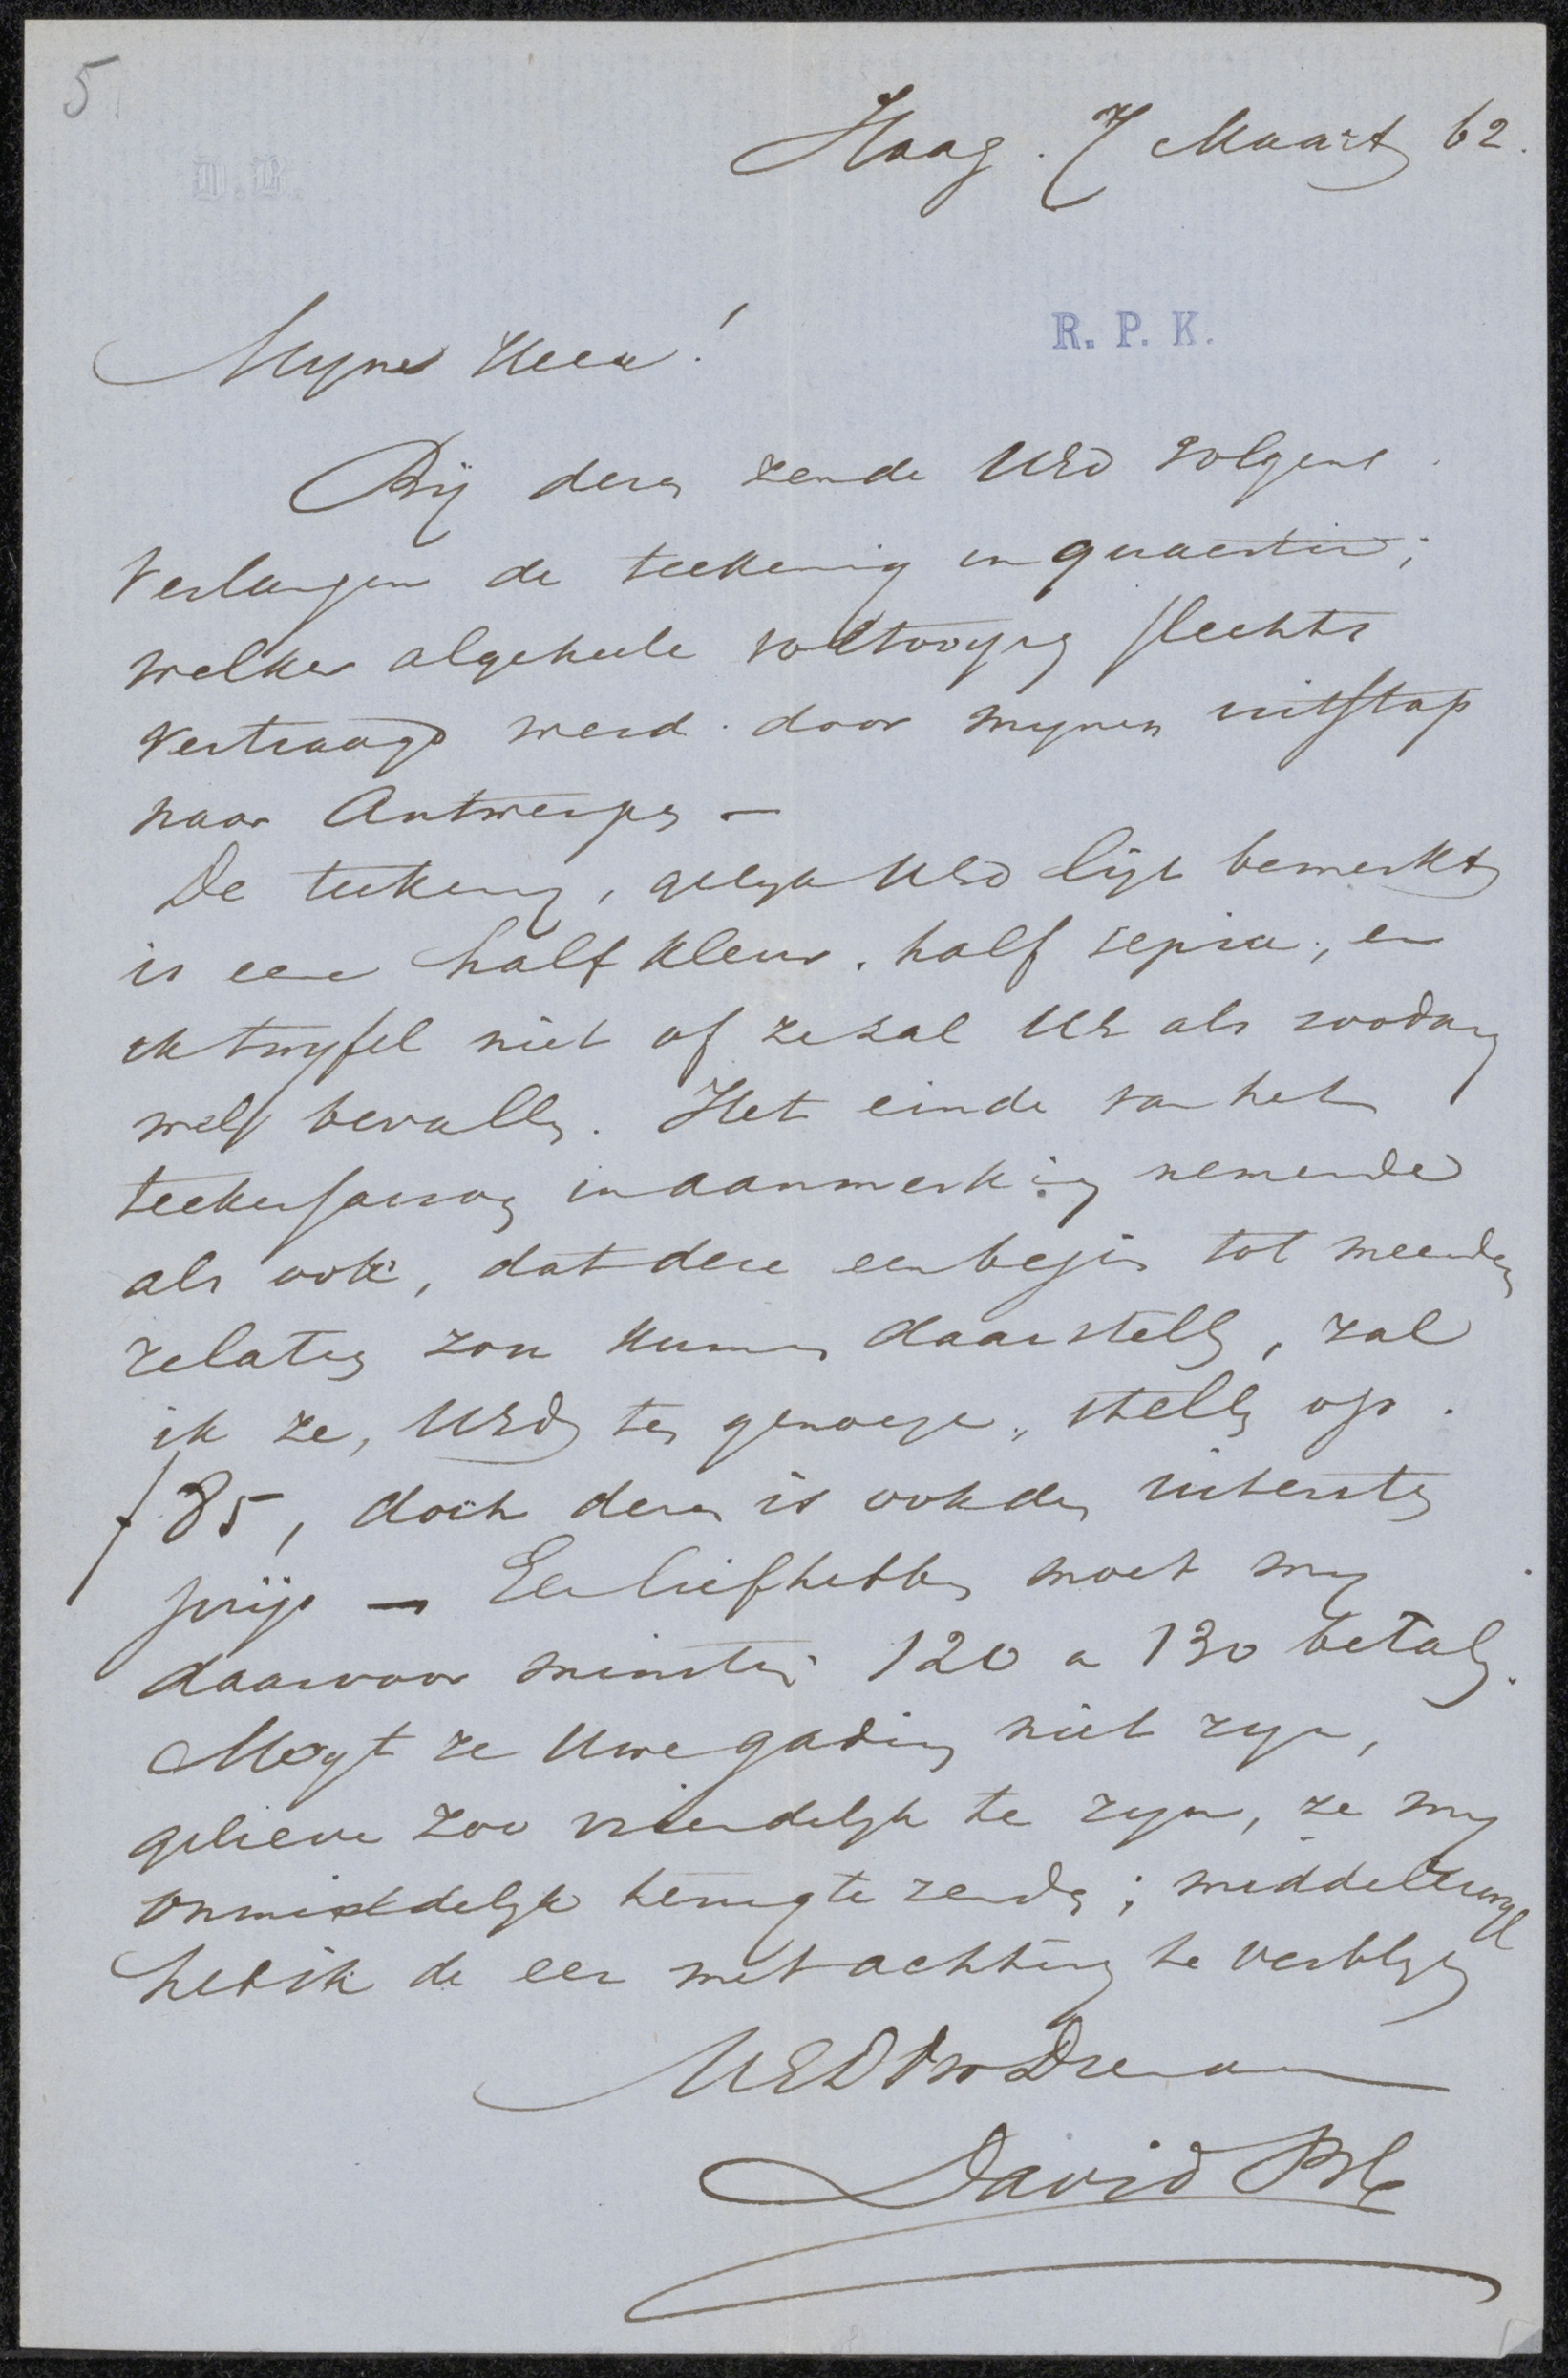 5
Haag. 7 Maart 62.
D.B.
R. P. K.
Myne Heer!
Bij dezen zende UEd volgens
verlangen de teekening in quaestie;
welker algeheele voltooying slechts
vertraagd werd door mynen uitstap
naar Antwerpen —
De teekening, gelyk UEd ligt bemerkt
is een half kleur, half sepia, en
ik twyfel niet of ze zal UE als zoodanig
wel bevallen. Het einde van het
teekensaisoen in aanmerking nemende
als ook, dat deze een begin tot meerdere
relatien zou kunnen daarstellen, zal
ik ze, UEd ten genoege, stellen op
f 85, doch deze is ook den uitersten
prijs — Een liefhebber moet my
daarvoor minstens 120 a 130 betalen.
Mogt ze Uwe gading niet zyn,
gelieve zoo vriendelyk te zyn, ze my
onmiddelyk terug te zenden; middelerwyl
heb ik de eer met achting te verblyven
UEd Dw Dienaar
David Bles